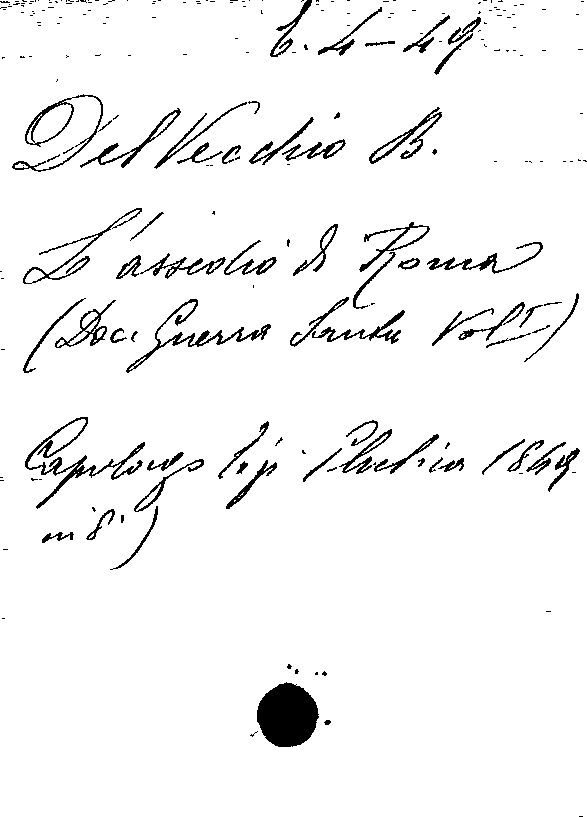 E. 4-49
Del Vecchio B.
L'assedio di Roma
(Doc. Guerra Santa Vol I)
Capolago tip. Elvetica 1849
in 8°)